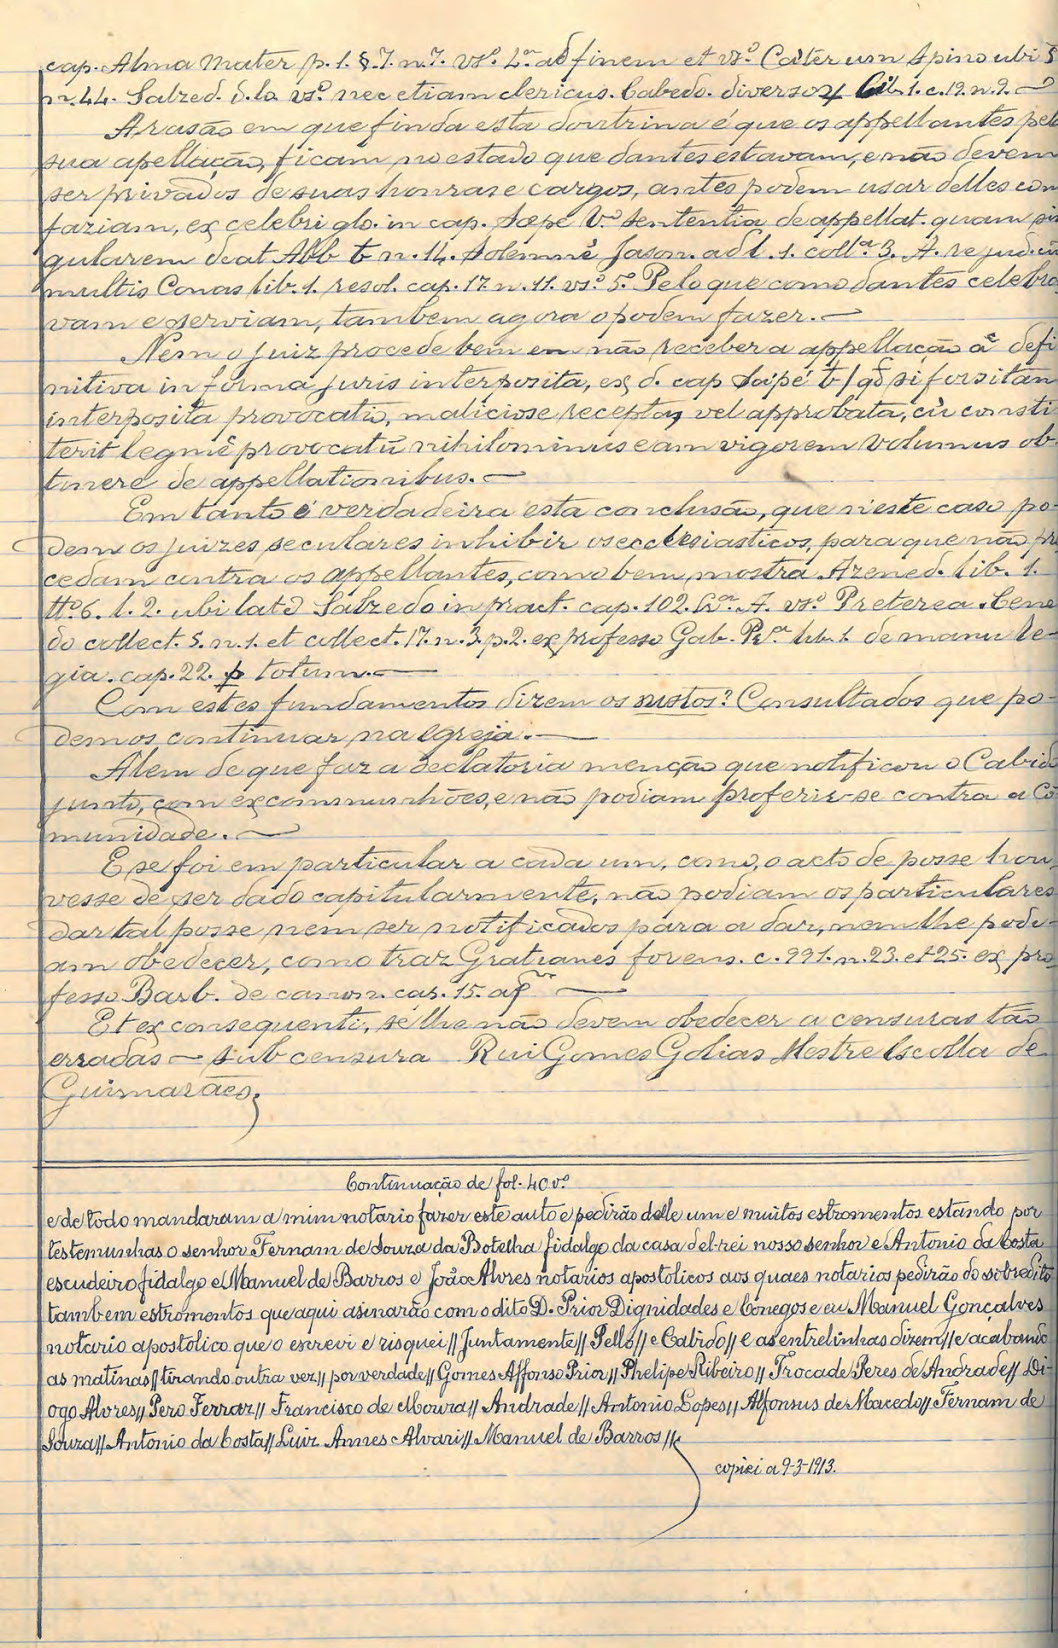 cap. Alma Mater p. 1. §. 7. n. 7. vsº. Lªᵐ ad finem et vsº. Cæterum Spino ubi S
n. 44. Salzed. d. lo vsº. nec etiam clericus. Cabedo. diversoz Lib. 1. c. 19. n. 9.
A rasão em que finda esta doutrina é que os appellantes pela
sua apellação, ficam no estado que dantes estavam, e não devem
ser privados de suas honras e cargos, antes podem usar delles com
fariam, ex celebri glo. in cap. Sæpe Vº. sententia de appellat. quam sin
gularem dcat Abb n. 14. solemnê Jason. ad l. 1. collª. 3. A. re judicã
multis Conas lib. 1. resol. cap. 17. n. 11. vsº. 5º. Pelo que como dantes celebra
vam e serviam, tambem agora o podem fazer.
Nem o juiz procede bem en não receber a appellação a defi
nitiva in forma juris interposita, ex d. cap si forsitan
interposita provocatio, maliciose recepta, vel approbata, cũ consti
terit legmê provocatũ nihilominus eam vigorem volumus ob-
tinere de appellationibus.
Em tanto é verdadeira esta conclusão, que n'este caso po-
dem os juizes seculares inhibir os ecclesiasticos, para que não pro
cedam contra os appellantes, como bem mostra Azened. lib. 1.
ttº 6. l. 2. ubi late Salzedo in pract. cap. 102. A. vsº. Preterea. Cene
do collect. 5. n. 1. et collect. 17. n. 3. p. 2. ex professo Gab. Prª lib. 1. de manu re-
gia. cap. 22. p totum.
Com estes fundamentos dizem os nostos? Consultados que po-
demos continuar na egreja.
Alem de que faz a declatoria menção que notificou o Cabido
junto, com excommunhões, e não podiam proferir-se contra a Cõ
munidade.
E se foi em particular a cada um, como, o acto de posse hou
vesse de ser dado capitularmente, não podiam os particulares
dar tal posse nem ser notificados para a dar, nem lhe podi-
am obedecer, como traz Gratianes forens. c. 991. n. 23. et 25. ex pro
fesso Barb. de canon. cas. 15.
Et ex consequenti, se lhe não devem obedecer a censuras tão
erradas — sub censura Rui Gomes Golias Mestre Escolla de
Guimarães.
Continuação de fol. 40 vº
e de todo mandaram a mim notario fazer este auto e pedirão delle um e muitos estromentos estando por
testemunhas o senhor Fernam de Souza da Botelha fidalgo da casa d'el-rei nosso senhor e Antonio da Costa
escudeiro fidalgo e Manuel de Barros e João Alvres notarios apostolicos aos quaes notarios pedirão do sobredito
tambem estromentos que aqui asinarão com o dito D. Prior Dignidades e Conegos e eu Manuel Gonçalves
notario apostolico que o escrevi e risquei // Juntamente // Pello // e Cabido // e as entrelinhas dizem // e acabando
as matinas // tirando outra vez // por verdade // Gomes Affonso Prior // Phelipe Ribeiro // Trocade Peres de Andrade // Di-
ogo Alvres // Pero Ferraz // Francisco de Moura // Andrade // Antonio Lopes // Alfonsus de Macedo // Fernam de
Souza // Antonio da Costa // Luiz Annes Alvari // Manuel de Barros //
copiei a 9-3-1913.